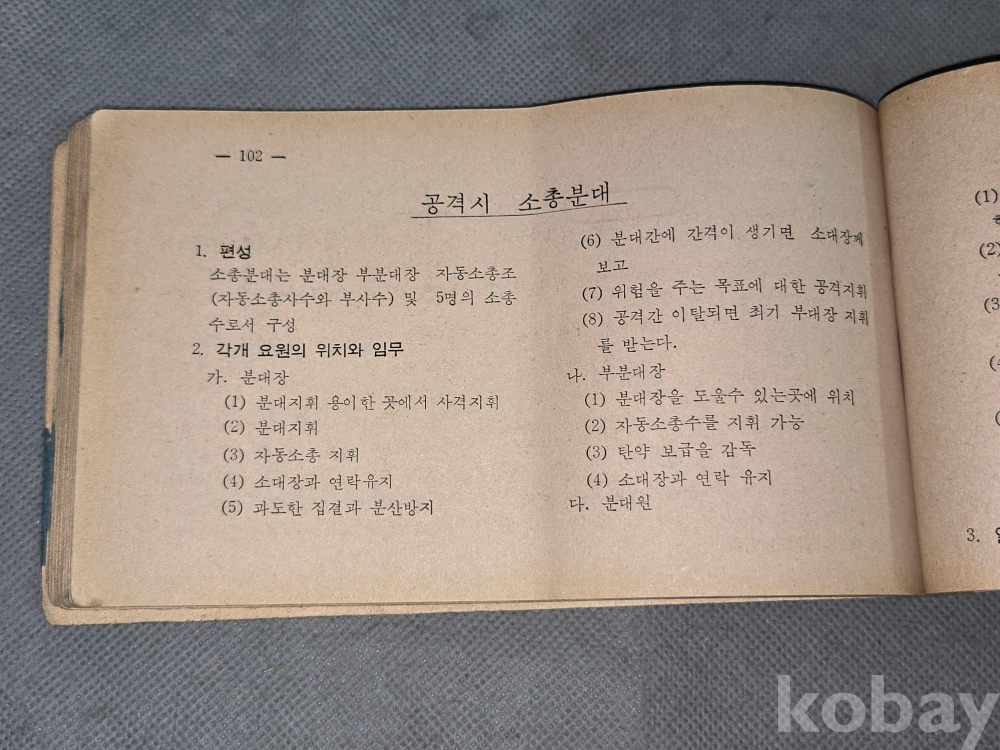 — 102 —
공격시 소총분대
1. 편성
소총분대는 분대장 부분대장 자동소총조
(자동소총사수와 부사수) 및 5명의 소총
수로서 구성
2. 각개 요원의 위치와 임무
가. 분대장
(1) 분대지휘 용이한 곳에서 사격지휘
(2) 분대지휘
(3) 자동소총 지휘
(4) 소대장과 연락유지
(5) 과도한 집결과 분산방지
(6) 분대간에 간격이 생기면 소대장께
보고
(7) 위험을 주는 목표에 대한 공격지휘
(8) 공격간 이탈되면 최기 부대장 지휘
를 받는다.
나. 부분대장
(1) 분대장을 도울수 있는곳에 위치
(2) 자동소총수를 지휘 가능
(3) 탄약 보급을 감독
(4) 소대장과 연락 유지
다. 분대원
(1)
(2)
(3
(4
3.
kobay